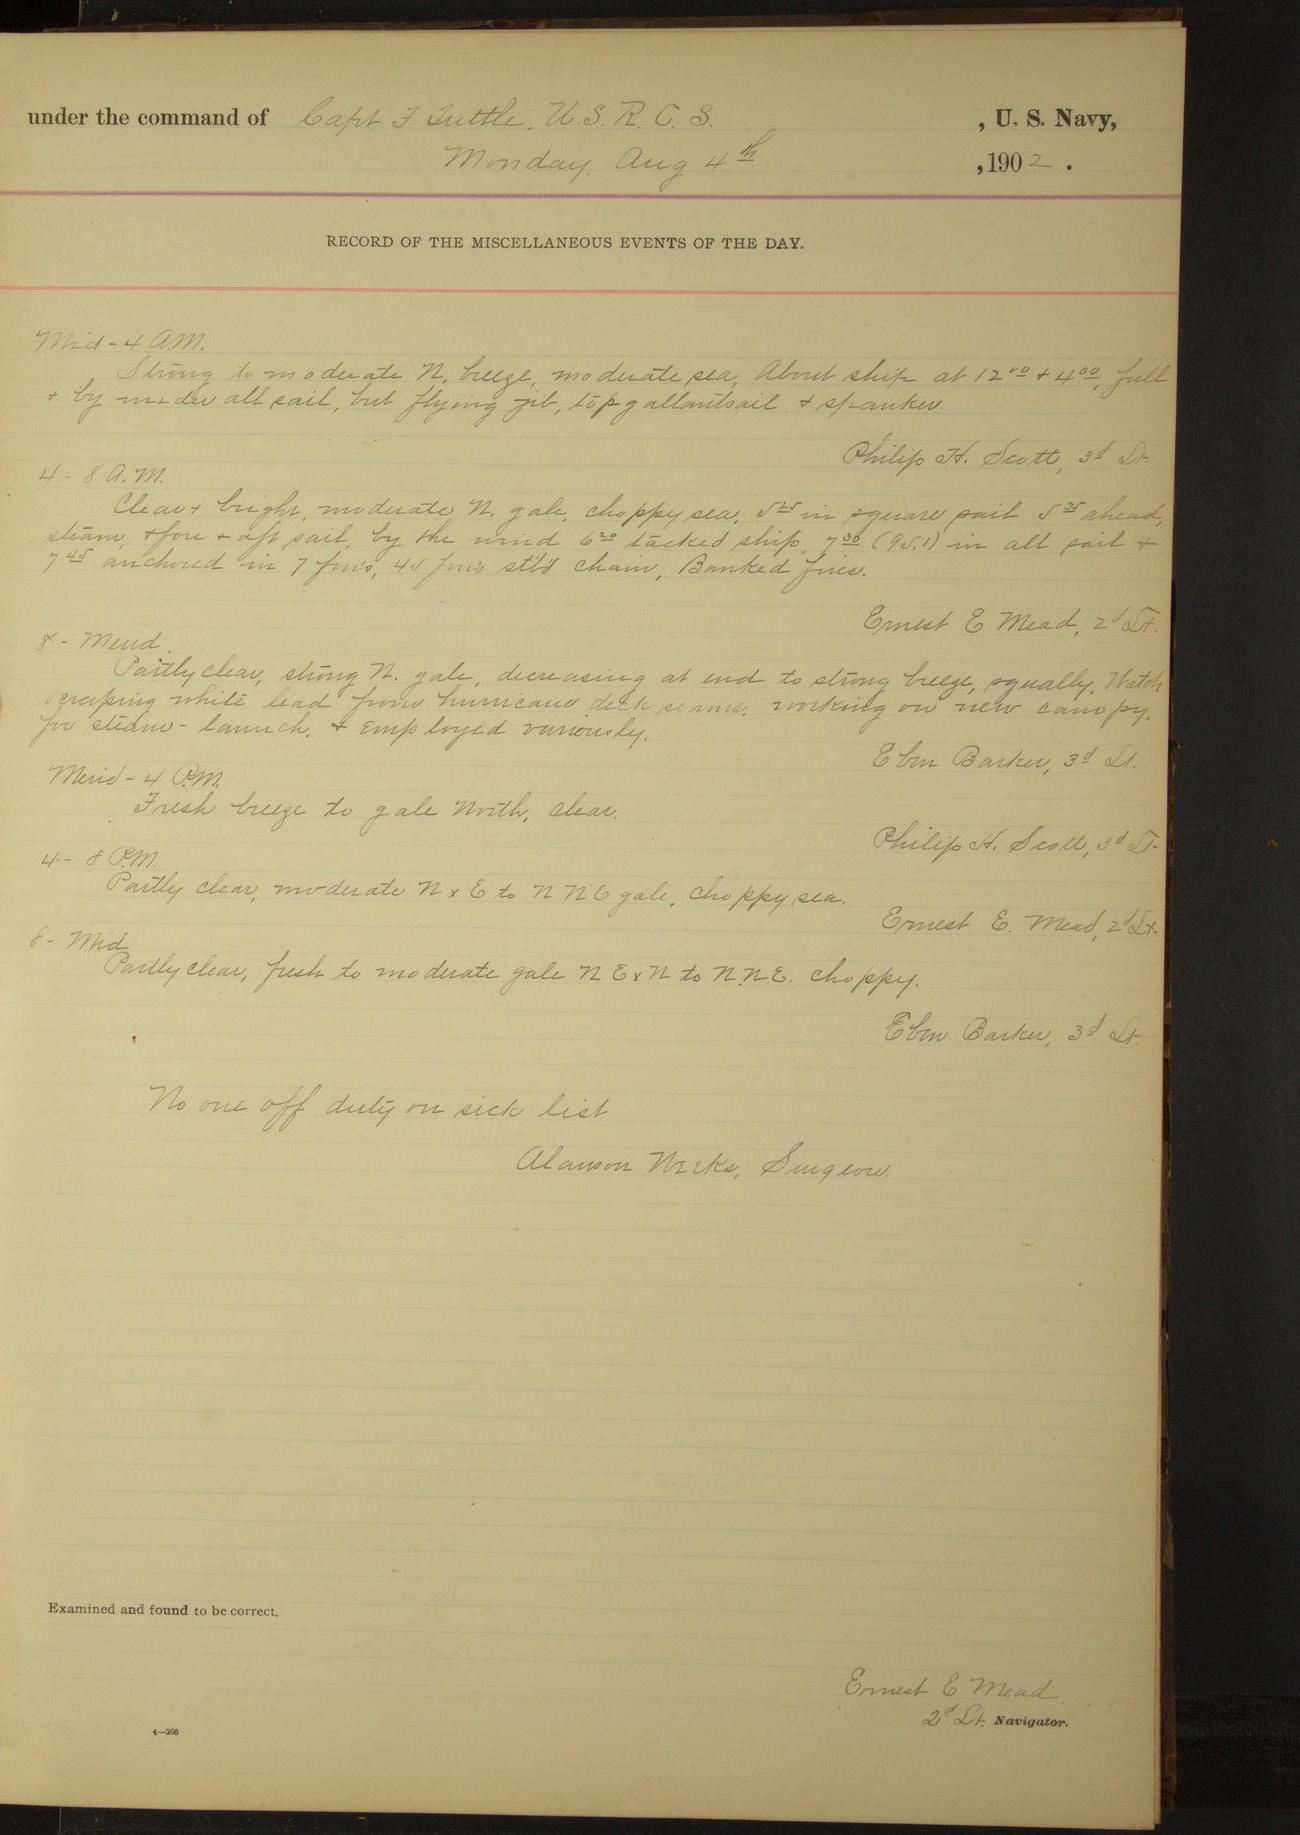 under the command of Capt F Tuttle, U.S.R.C.S. , U. S. Navy,
Monday, Aug 4th , 1902.
RECORD OF THE MISCELLANEOUS EVENTS OF THE DAY.
Mid - 4 A.M.
Strong to moderate N. breeze, moderate sea, About ship at 12 00 + 4 00, full
+ by under all sail, but flying jib, topgallantsail + spanker.
Philip H. Scott, 3d Lt.
4 - 8 A.M.
Clear + bright, moderate N. gale, choppy sea, 5 25 in square sail 5 35 ahead,
steam, + fore + aft sail, by the wind 6 20 tacked ship, 7 00 (95.1) in all sail +
7 45 anchored in 7 fms, 45 fms stb'd chain, Banked fires.
Ernest E Mead, 2d Lt.
8 - Merid.
Partly clear, strong N. gale, decreasing at end to strong breeze, squally, Watch
scraping white lead from hurricane deck seams, working on new canopy,
for steam-launch, + employed variously.
Eben Barker, 3d Lt.
Merid - 4 P.M.
Fresh breeze to gale North, clear.
Philip H. Scott, 3d Lt.
4 - 8 P.M.
Partly clear, moderate N x E to N N E gale, choppy sea.
Ernest E. Mead, 2d Lt.
8 - Mid
Partly clear, fresh to moderate gale N E x N to N.N.E. choppy.
Eben Barker, 3d Lt.
No one off duty on sick list
Alanson Weeks, Surgeon.
Examined and found to be correct.
Ernest E Mead
2d Lt. Navigator.
4—266